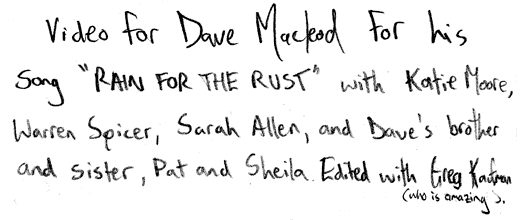 Video for Dave Macleod for his
Song "RAIN FOR THE RUST" with Katie Moore,
Warren Spicer, Sarah Allen, and Dave's brother
and sister, Pat and Sheila. Edited with Greg Kaufman
(who is amazing).